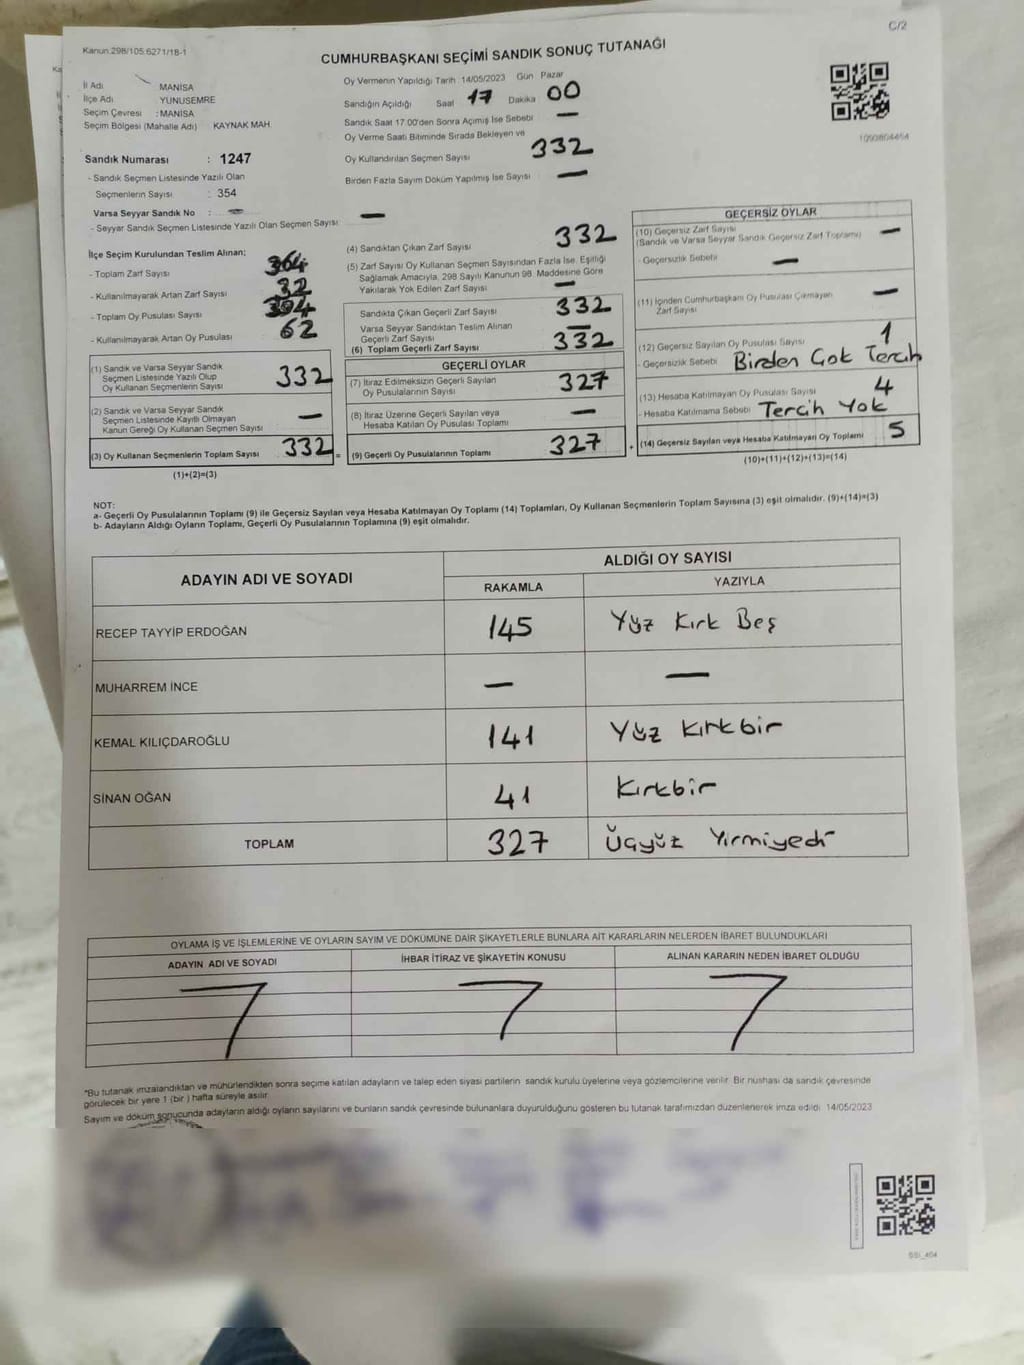 C/2
Kanun.298/105.6271/18-1
CUMHURBAŞKANI SEÇİMİ SANDIK SONUÇ TUTANAĞI
İl Adı MANİSA
İlçe Adı YUNUSEMRE
Seçim Çevresi : MANİSA
Seçim Bölgesi (Mahalle Adı) KAYNAK MAH.
Sandık Numarası : 1247
- Sandık Seçmen Listesinde Yazılı Olan
Seçmenlerin Sayısı : 354
Varsa Seyyar Sandık No : —
- Seyyar Sandık Seçmen Listesinde Yazılı Olan Seçmen Sayısı: —
Oy Vermenin Yapıldığı Tarih 14/05/2023 Gün Pazar
Sandığın Açıldığı Saat 17 Dakika 00
Sandık Saat 17.00'den Sonra Açımış İse Sebebi —
Oy Verme Saati Bitiminde Sırada Bekleyen ve
Oy Kullandırılan Seçmen Sayısı 332
Birden Fazla Sayım Döküm Yapılmış İse Sayısı —
1093804454
İlçe Seçim Kurulundan Teslim Alınan;
- Toplam Zarf Sayısı 364
- Kullanılmayarak Artan Zarf Sayısı 32
- Toplam Oy Pusulası Sayısı 394
- Kullanılmayarak Artan Oy Pusulası 62
(1) Sandık ve Varsa Seyyar Sandık
Seçmen Listesinde Yazılı Olup
Oy Kullanan Seçmenlerin Sayısı 332
(2) Sandık ve Varsa Seyyar Sandık
Seçmen Listesinde Kayıtlı Olmayan
Kanun Gereği Oy Kullanan Seçmen Sayısı —
(3) Oy Kullanan Seçmenlerin Toplam Sayısı 332 =
(1)+(2)=(3)
(4) Sandıktan Çıkan Zarf Sayısı 332
(5) Zarf Sayısı Oy Kullanan Seçmen Sayısından Fazla İse, Eşitliği
Sağlamak Amacıyla, 298 Sayılı Kanunun 98. Maddesine Göre
Yakılarak Yok Edilen Zarf Sayısı —
Sandıkta Çıkan Geçerli Zarf Sayısı 332
Varsa Seyyar Sandıktan Teslim Alınan
Geçerli Zarf Sayısı —
(6) Toplam Geçerli Zarf Sayısı 332
GEÇERLİ OYLAR
(7) İtiraz Edilmeksizin Geçerli Sayılan
Oy Pusulalarının Sayısı 327
(8) İtiraz Üzerine Geçerli Sayılan veya
Hesaba Katılan Oy Pusulası Toplamı —
(9) Geçerli Oy Pusulalarının Toplamı 327 +
GEÇERSİZ OYLAR
(10) Geçersiz Zarf Sayısı —
(Sandık ve Varsa Seyyar Sandık Geçersiz Zarf Toplamı)
- Geçersizlik Sebebi —
(11) İçinden Cumhurbaşkanı Oy Pusulası Çıkmayan —
Zarf Sayısı
(12) Geçersiz Sayılan Oy Pusulası Sayısı 1
- Geçersizlik Sebebi Birden Çok Tercih
(13) Hesaba Katılmayan Oy Pusulası Sayısı 4
- Hesaba Katılmama Sebebi Tercih Yok
(14) Geçersiz Sayılan veya Hesaba Katılmayan Oy Toplamı 5
(10)+(11)+(12)+(13)=(14)
NOT:
a- Geçerli Oy Pusulalarının Toplamı (9) ile Geçersiz Sayılan veya Hesaba Katılmayan Oy Toplamı (14) Toplamları, Oy Kullanan Seçmenlerin Toplam Sayısına (3) eşit olmalıdır. (9)+(14)=(3)
b- Adayların Aldığı Oyların Toplamı, Geçerli Oy Pusulalarının Toplamına (9) eşit olmalıdır.
ADAYIN ADI VE SOYADI ALDIĞI OY SAYISI
RAKAMLA YAZIYLA
RECEP TAYYİP ERDOĞAN 145 Yüz Kırk Beş
MUHARREM İNCE — —
KEMAL KILIÇDAROĞLU 141 Yüz Kırkbir
SİNAN OĞAN 41 Kırkbir
TOPLAM 327 Üçyüz Yirmiyedi
OYLAMA İŞ VE İŞLEMLERİNE VE OYLARIN SAYIM VE DÖKÜMÜNE DAİR ŞİKAYETLERLE BUNLARA AİT KARARLARIN NELERDEN İBARET BULUNDUKLARI
ADAYIN ADI VE SOYADI İHBAR İTİRAZ VE ŞİKAYETİN KONUSU ALINAN KARARIN NEDEN İBARET OLDUĞU
*Bu tutanak imzalandıktan ve mühürlendikten sonra seçime katılan adayların ve talep eden siyasi partilerin sandık kurulu üyelerine veya gözlemcilerine verilir. Bir nüshası da sandık çevresinde
görülecek bir yere 1 (bir) hafta süreyle asılır.
Sayım ve döküm sonucunda adayların aldığı oyların sayılarını ve bunların sandık çevresinde bulunanlara duyurulduğunu gösteren bu tutanak tarafımızdan düzenlenerek imza edildi. 14/05/2023
SSİ_404